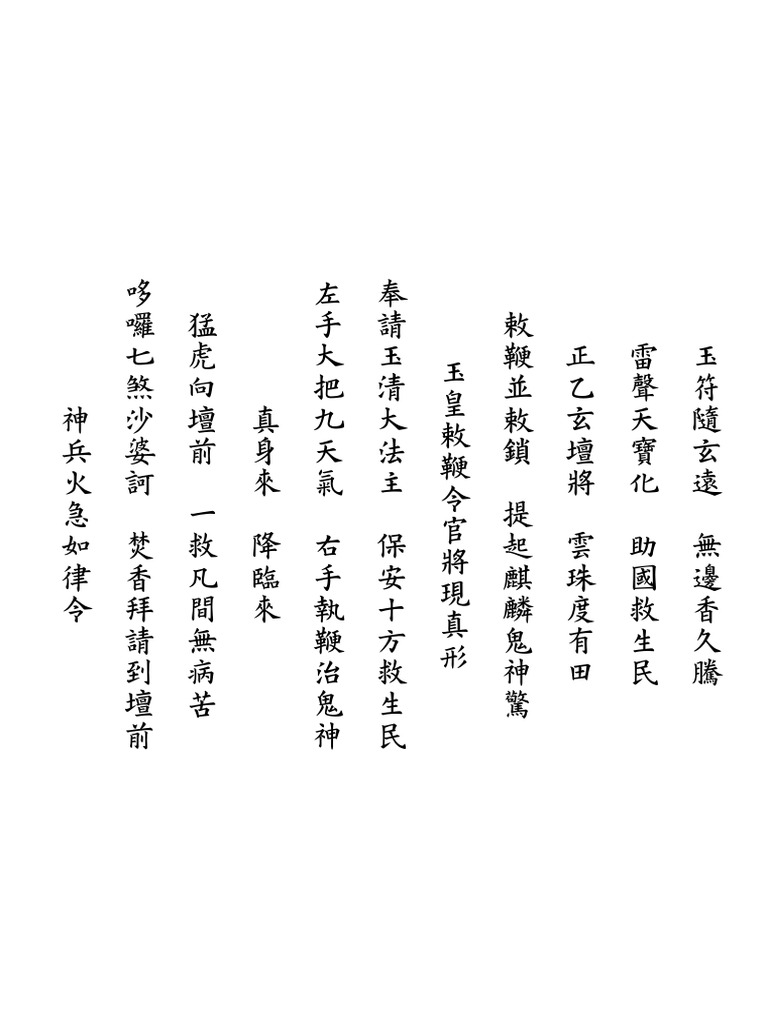 玉符隨玄遠　無邊香久騰
雷聲天寶化　助國救生民
正乙玄壇將　雲珠度有田
敕鞭並敕鎖　提起麒麟鬼神驚
玉皇敕鞭令官將現真形
奉請玉清大法主　保安十方救生民
左手大把九天氣　右手執鞭治鬼神
真身來　降臨來
猛虎向壇前　一救凡間無病苦
哆囉七煞沙婆訶　焚香拜請到壇前
神兵火急如律令